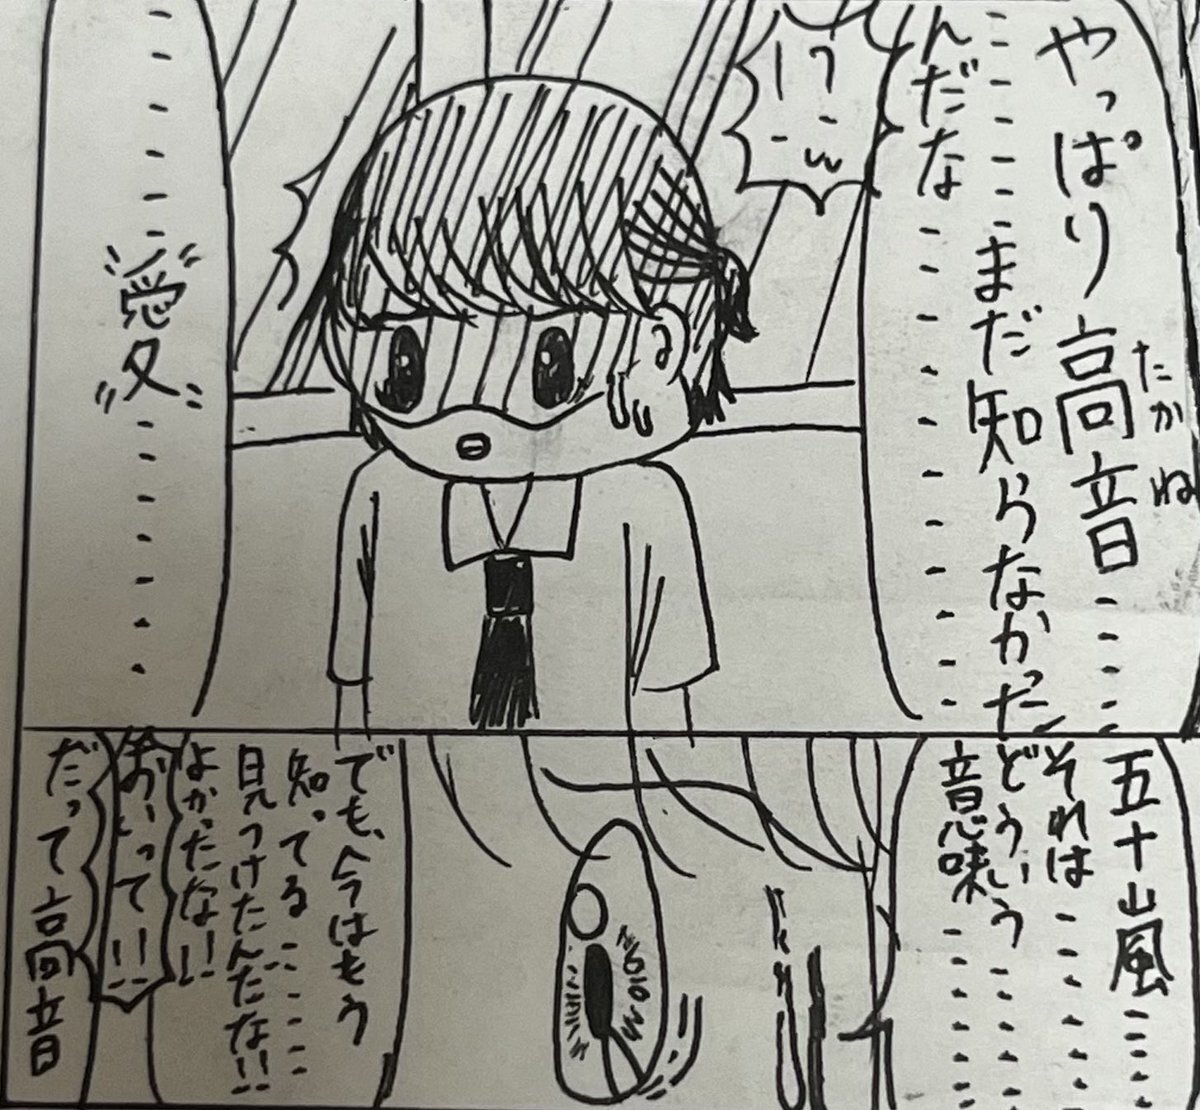 やっぱり高音……
たかね
……まだ知らなかった
んだな………
!?
………愛………
五十嵐……
それは……
どういう……
意味……
でも、今はもう
知ってる……
見つけたんだな!!
よかったな!!
おいって!!
だって高音